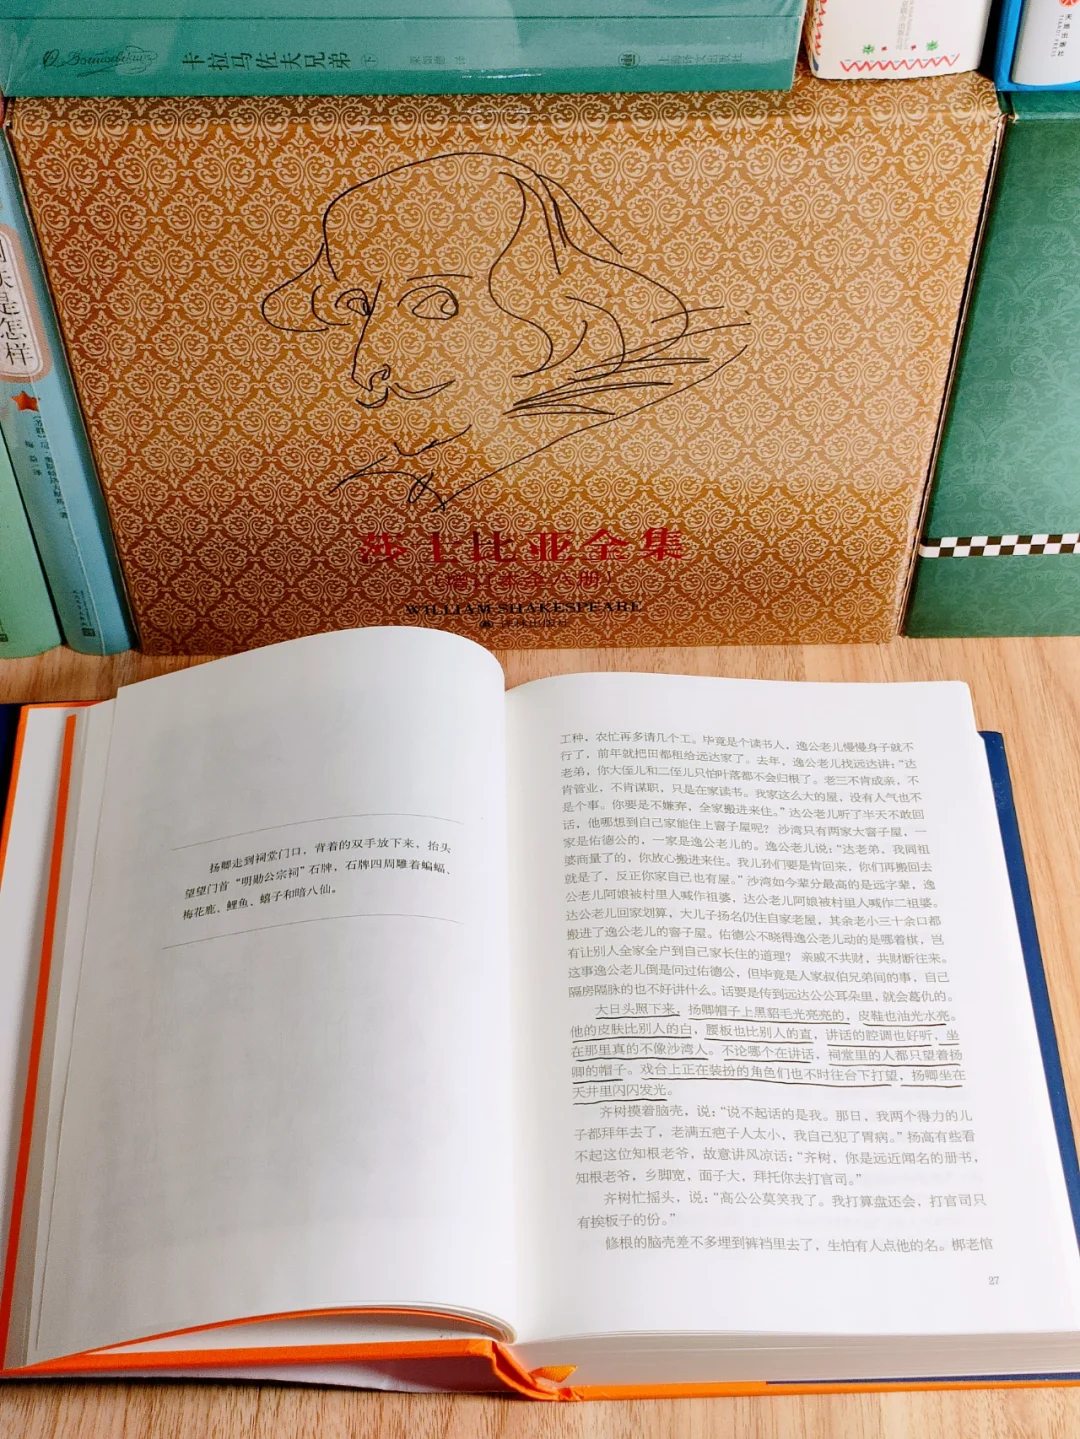 卡拉马佐夫兄弟 下
上海译文出版社
是怎样
莎士比亚全集
WILLIAM SHAKESPEARE
译林出版社
扬卿走到祠堂门口,背着的双手放下来,抬头
望望门首“明勋公宗祠”石牌,石牌四周雕着蝙蝠、
梅花鹿、鲤鱼、蟢子和暗八仙。
工种,农忙再多请几个工。毕竟是个读书人,逸公老儿慢慢身子就不
行了,前年就把田都租给远达家了。去年,逸公老儿找远达讲:“达
老弟,你大侄儿和二侄儿只怕叶落都不会归根了。老三不肯成亲,不
肯管业,不肯谋职,只是在家读书。我家这么大的屋,没有人气也不
是个事。你要是不嫌弃,全家搬进来住。”达公老儿听了半天不敢回
话,他哪想到自己家能住上窨子屋呢?沙湾只有两家大窨子屋,一
家是佑德公的,一家是逸公老儿的。逸公老儿说:“达老弟,我同祖
婆商量了的,你放心搬进来住。我儿孙们要是肯回来,你们再搬回去
就是了,反正你家自己也有屋。”沙湾如今辈分最高的是远字辈,逸
公老儿阿娘被村里人喊作祖婆,达公老儿阿娘被村里人喊作二祖婆。
达公老儿回家划算,大儿子扬名仍住自家老屋,其余老小三十余口都
搬进了逸公老儿的窨子屋。佑德公不晓得逸公老儿动的是哪着棋,岂
有让别人全家全户到自己家长住的道理?亲戚不共财,共财断往来。
这事逸公老儿倒是问过佑德公,但毕竟是人家叔伯兄弟间的事,自己
隔房隔脉的也不好讲什么。话要是传到远达公公耳朵里,就会葛仇的。
大日头照下来,扬卿帽子上黑貂毛光亮亮的,皮鞋也油光水亮。
他的皮肤比别人的白,腰板也比别人的直,讲话的腔调也好听,坐
在那里真的不像沙湾人。不论哪个在讲话,祠堂里的人都只望着扬
卿的帽子。戏台上正在装扮的角色们也不时往台下打望,扬卿坐在
天井里闪闪发光。
齐树摸着脑壳,说:“说不起话的是我。那日,我两个得力的儿
子都拜年去了,老满五疤子人太小,我自己犯了胃病。”扬高有些看
不起这位知根老爷,故意讲风凉话:“齐树,你是远近闻名的册书,
知根老爷,乡脚宽,面子大,拜托你去打官司。”
齐树忙摇头,说:“高公公莫笑我了。我打算盘还会,打官司只
有挨板子的份。”
修根的脑壳差不多埋到裤裆里去了,生怕有人点他的名。梆老倌
27